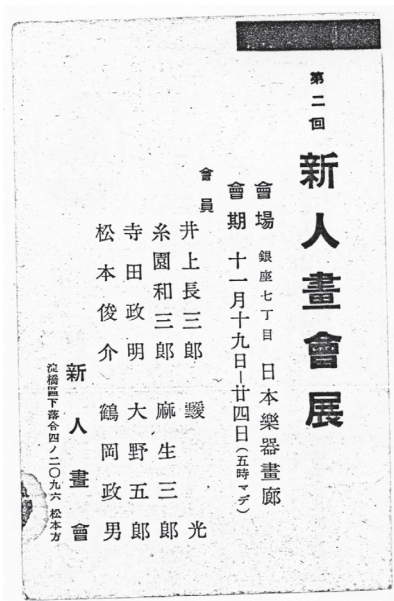 第二回
新人畫會展
會場 銀座七丁目 日本樂器畫廊
會期 十一月十九日―廿四日(五時マデ)
會員
井上長三郎 靉光
糸園和三郎 麻生三郎
寺田政明 大野五郎
松本俊介 鶴岡政男
新人畫會
淀橋區下落合四ノ二〇九六 松本方